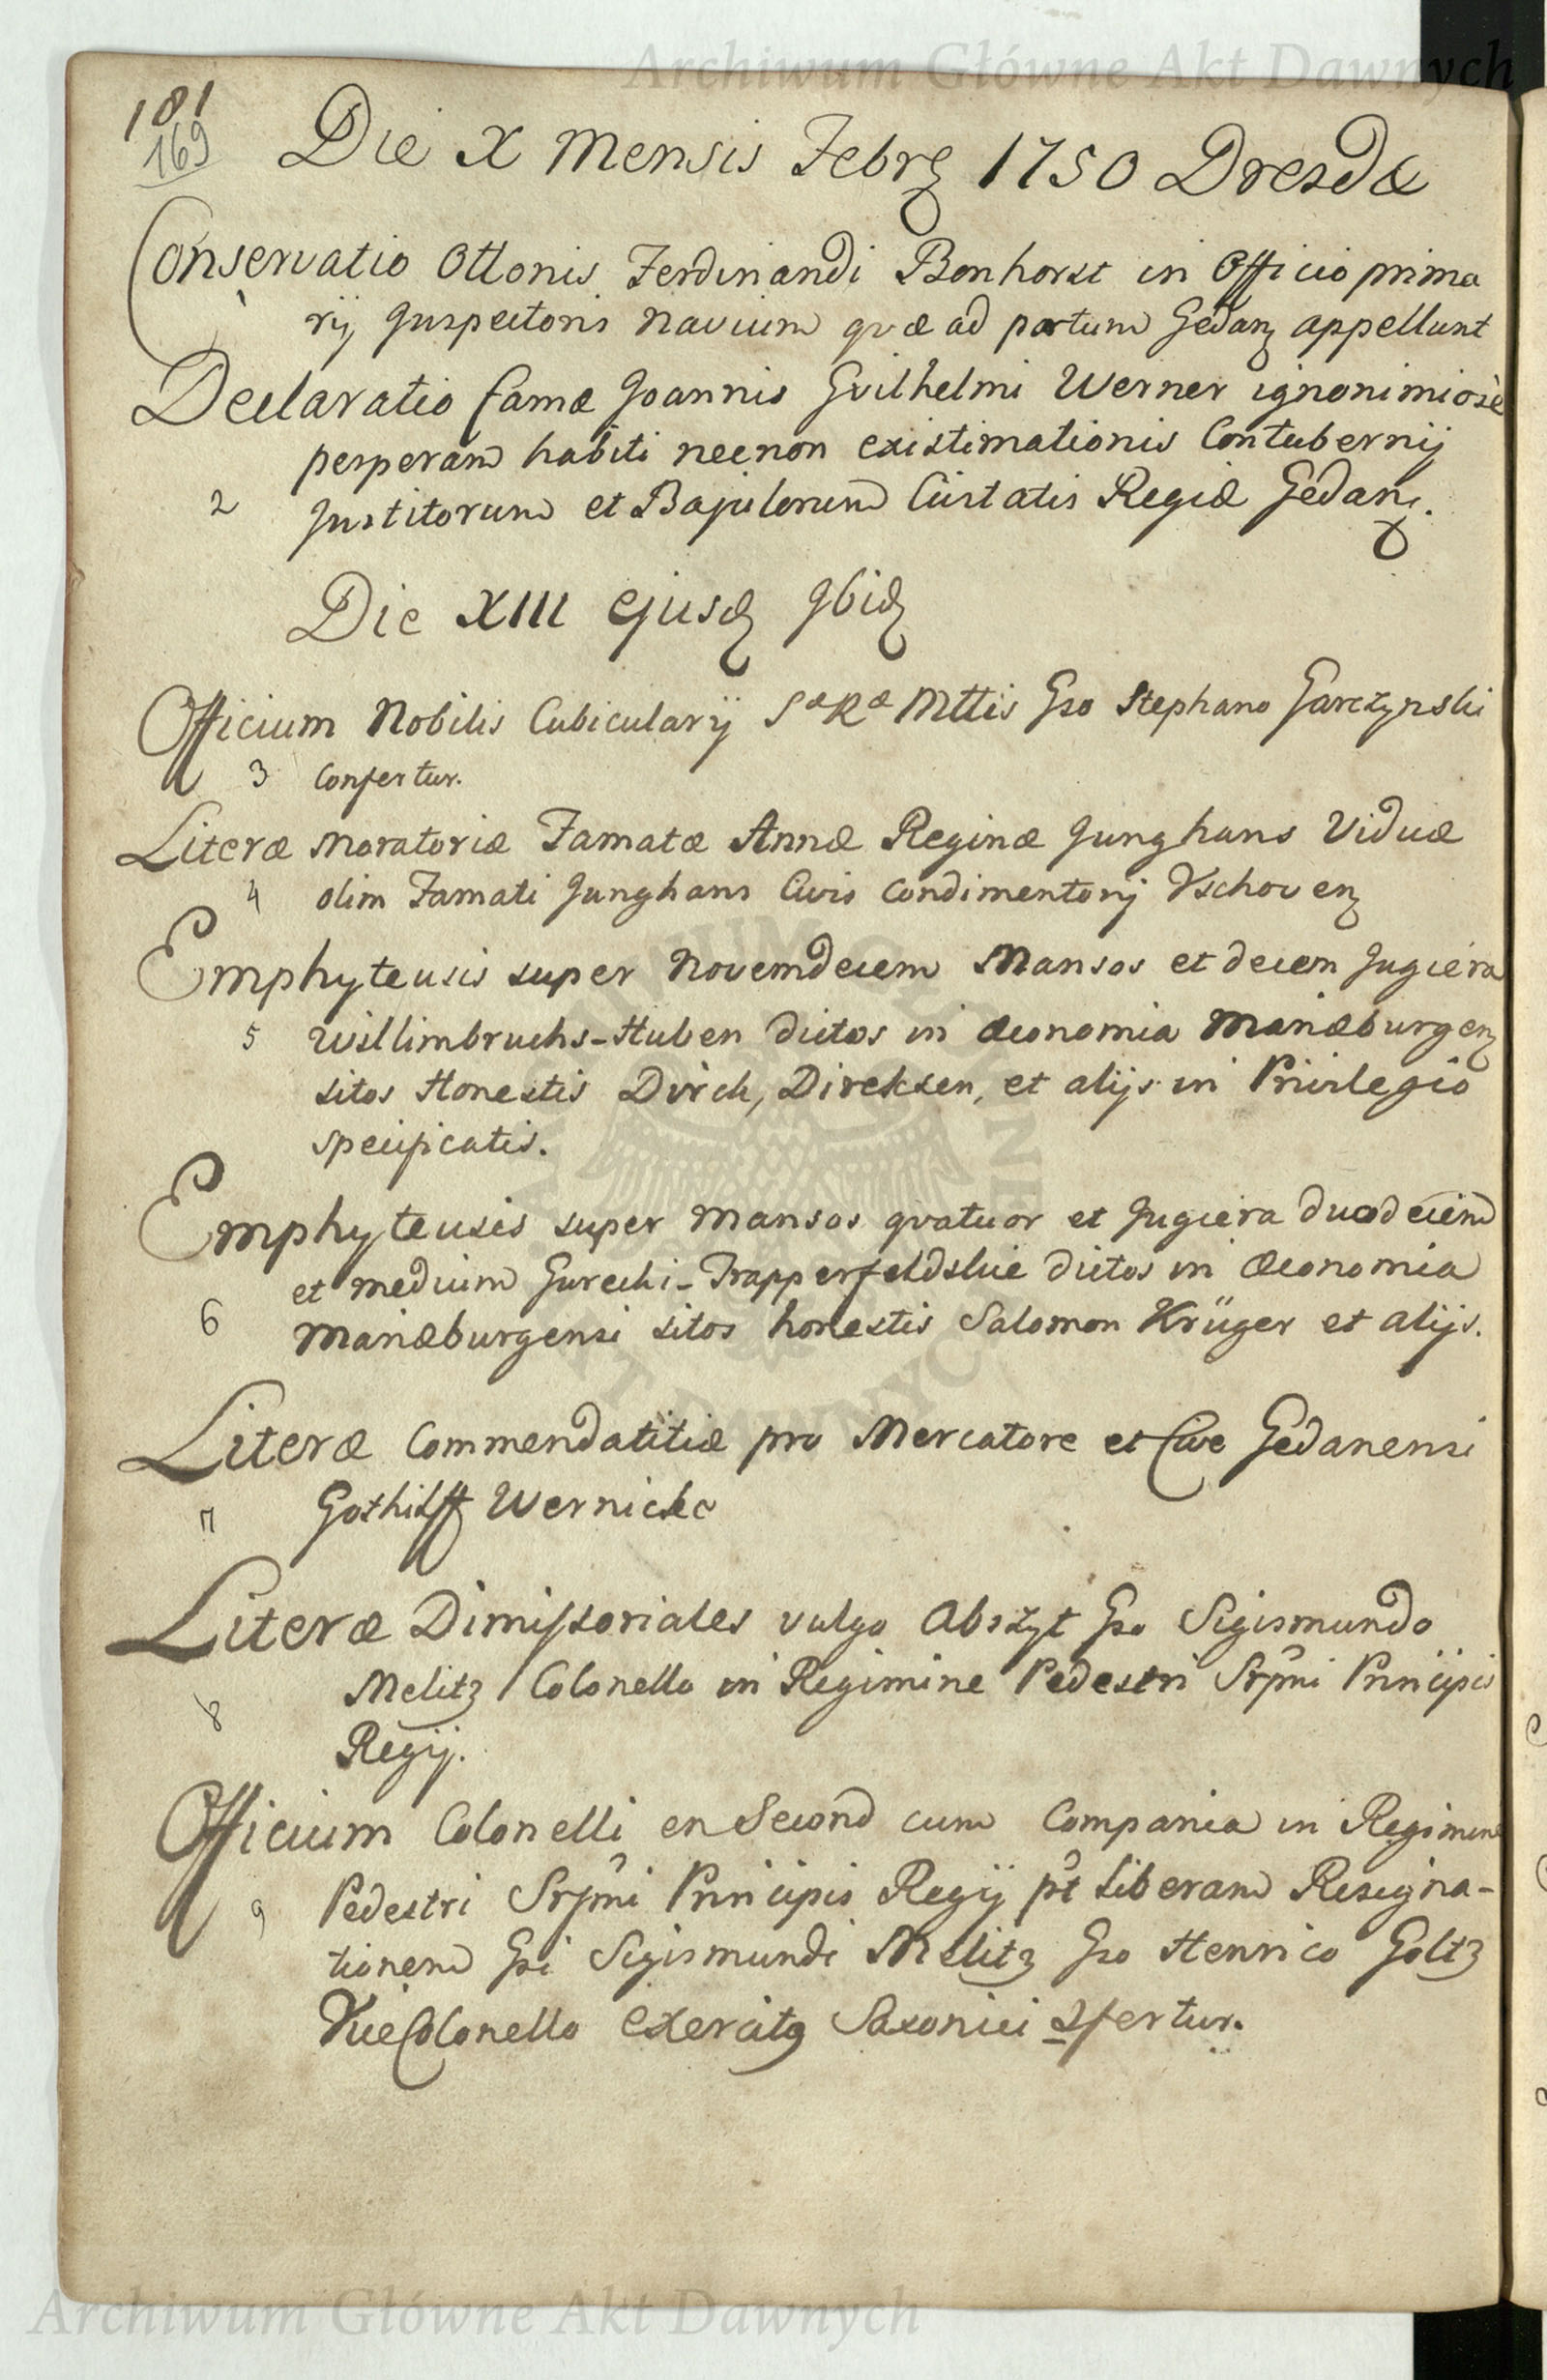 Archiwum Główne Akt Dawnych
181
169
Die X Mensis Febrȩ 1750 Dresdæ
Conservatio Ottonis Ferdinandi Bonhorst in Officio prima
1 rij Inspectoris Navium qvæ ad portum Gedanȩ appellunt
Declaratio famæ Joannis Gvilhelmi Werner ignonimiosè
perperam habiti necnon existimationis Contubernij
2 Institorum et Bajulorum Civitatis Regiæ Gedanȩ.
Die XIII ejusdȩ ibidȩ
Officium Nobilis Cubicularij Sæ Ræ Mttis Gso Stephano Garczynski
3 Confertur.
Literæ Moratoriæ Famatæ Annæ Reginæ Junghans Viduæ
4 olim Famati Junghans Civis Condimentorij Vschovenȩ
Emphyteusis super Novemdecem Mansos et decem Jugiera
5 Willimbruchs-Huben dictos in Œconomia Mariæburgenȩ
sitos Honestis Dirck, Direksen, et alijs in Privilegio
specificatis.
Emphyteusis super Mansos qvatuor et Jugiera duodecim
et medium Gurecki-Trapperfeldskie dictos in Œconomia
6 Mariæburgensi sitos honestis Salomon Krüger et alijs.
Literæ Commendatitiæ pro Mercatore et Cive Gedanensi
7 Gothilff Wernicke
Literæ Dimissoriales vulgo Abszyt Gso Sigismundo
8 Melitz Colonello in Regimine Pedestri Srs̃mi Principis
Regij.
Officium Colonelli en Second cum Compania in Regimine
9 Pedestri Srs̃mi Principis Regij pt̃ Liberam Resigna-
tionem Gsi Sigismundi Melitz Gso Henrico Goltz
ViceColonello exercitꝰ Saxonici ꝯfertur.
Archiwum Główne Akt Dawnych